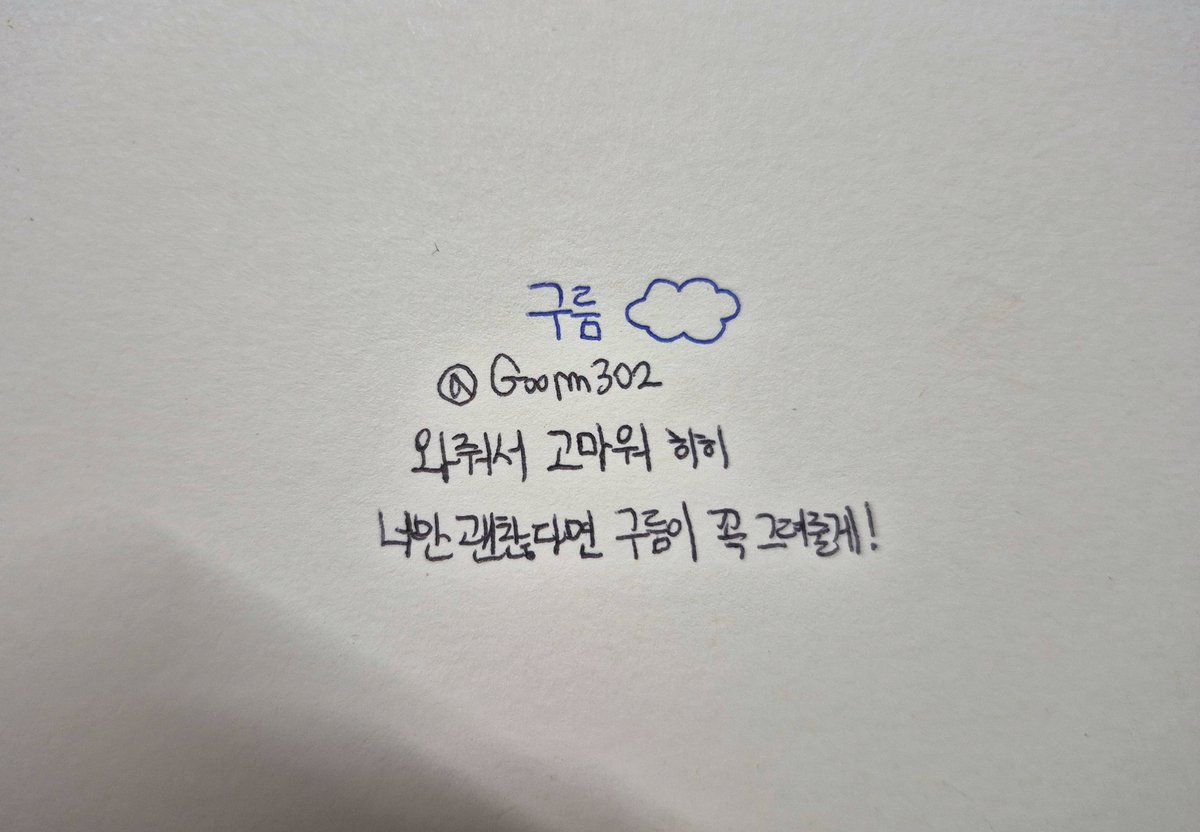 구름
@Goorm302
와줘서 고마워 히히
너만 괜찮다면 구름이 꼭 그려줄게!